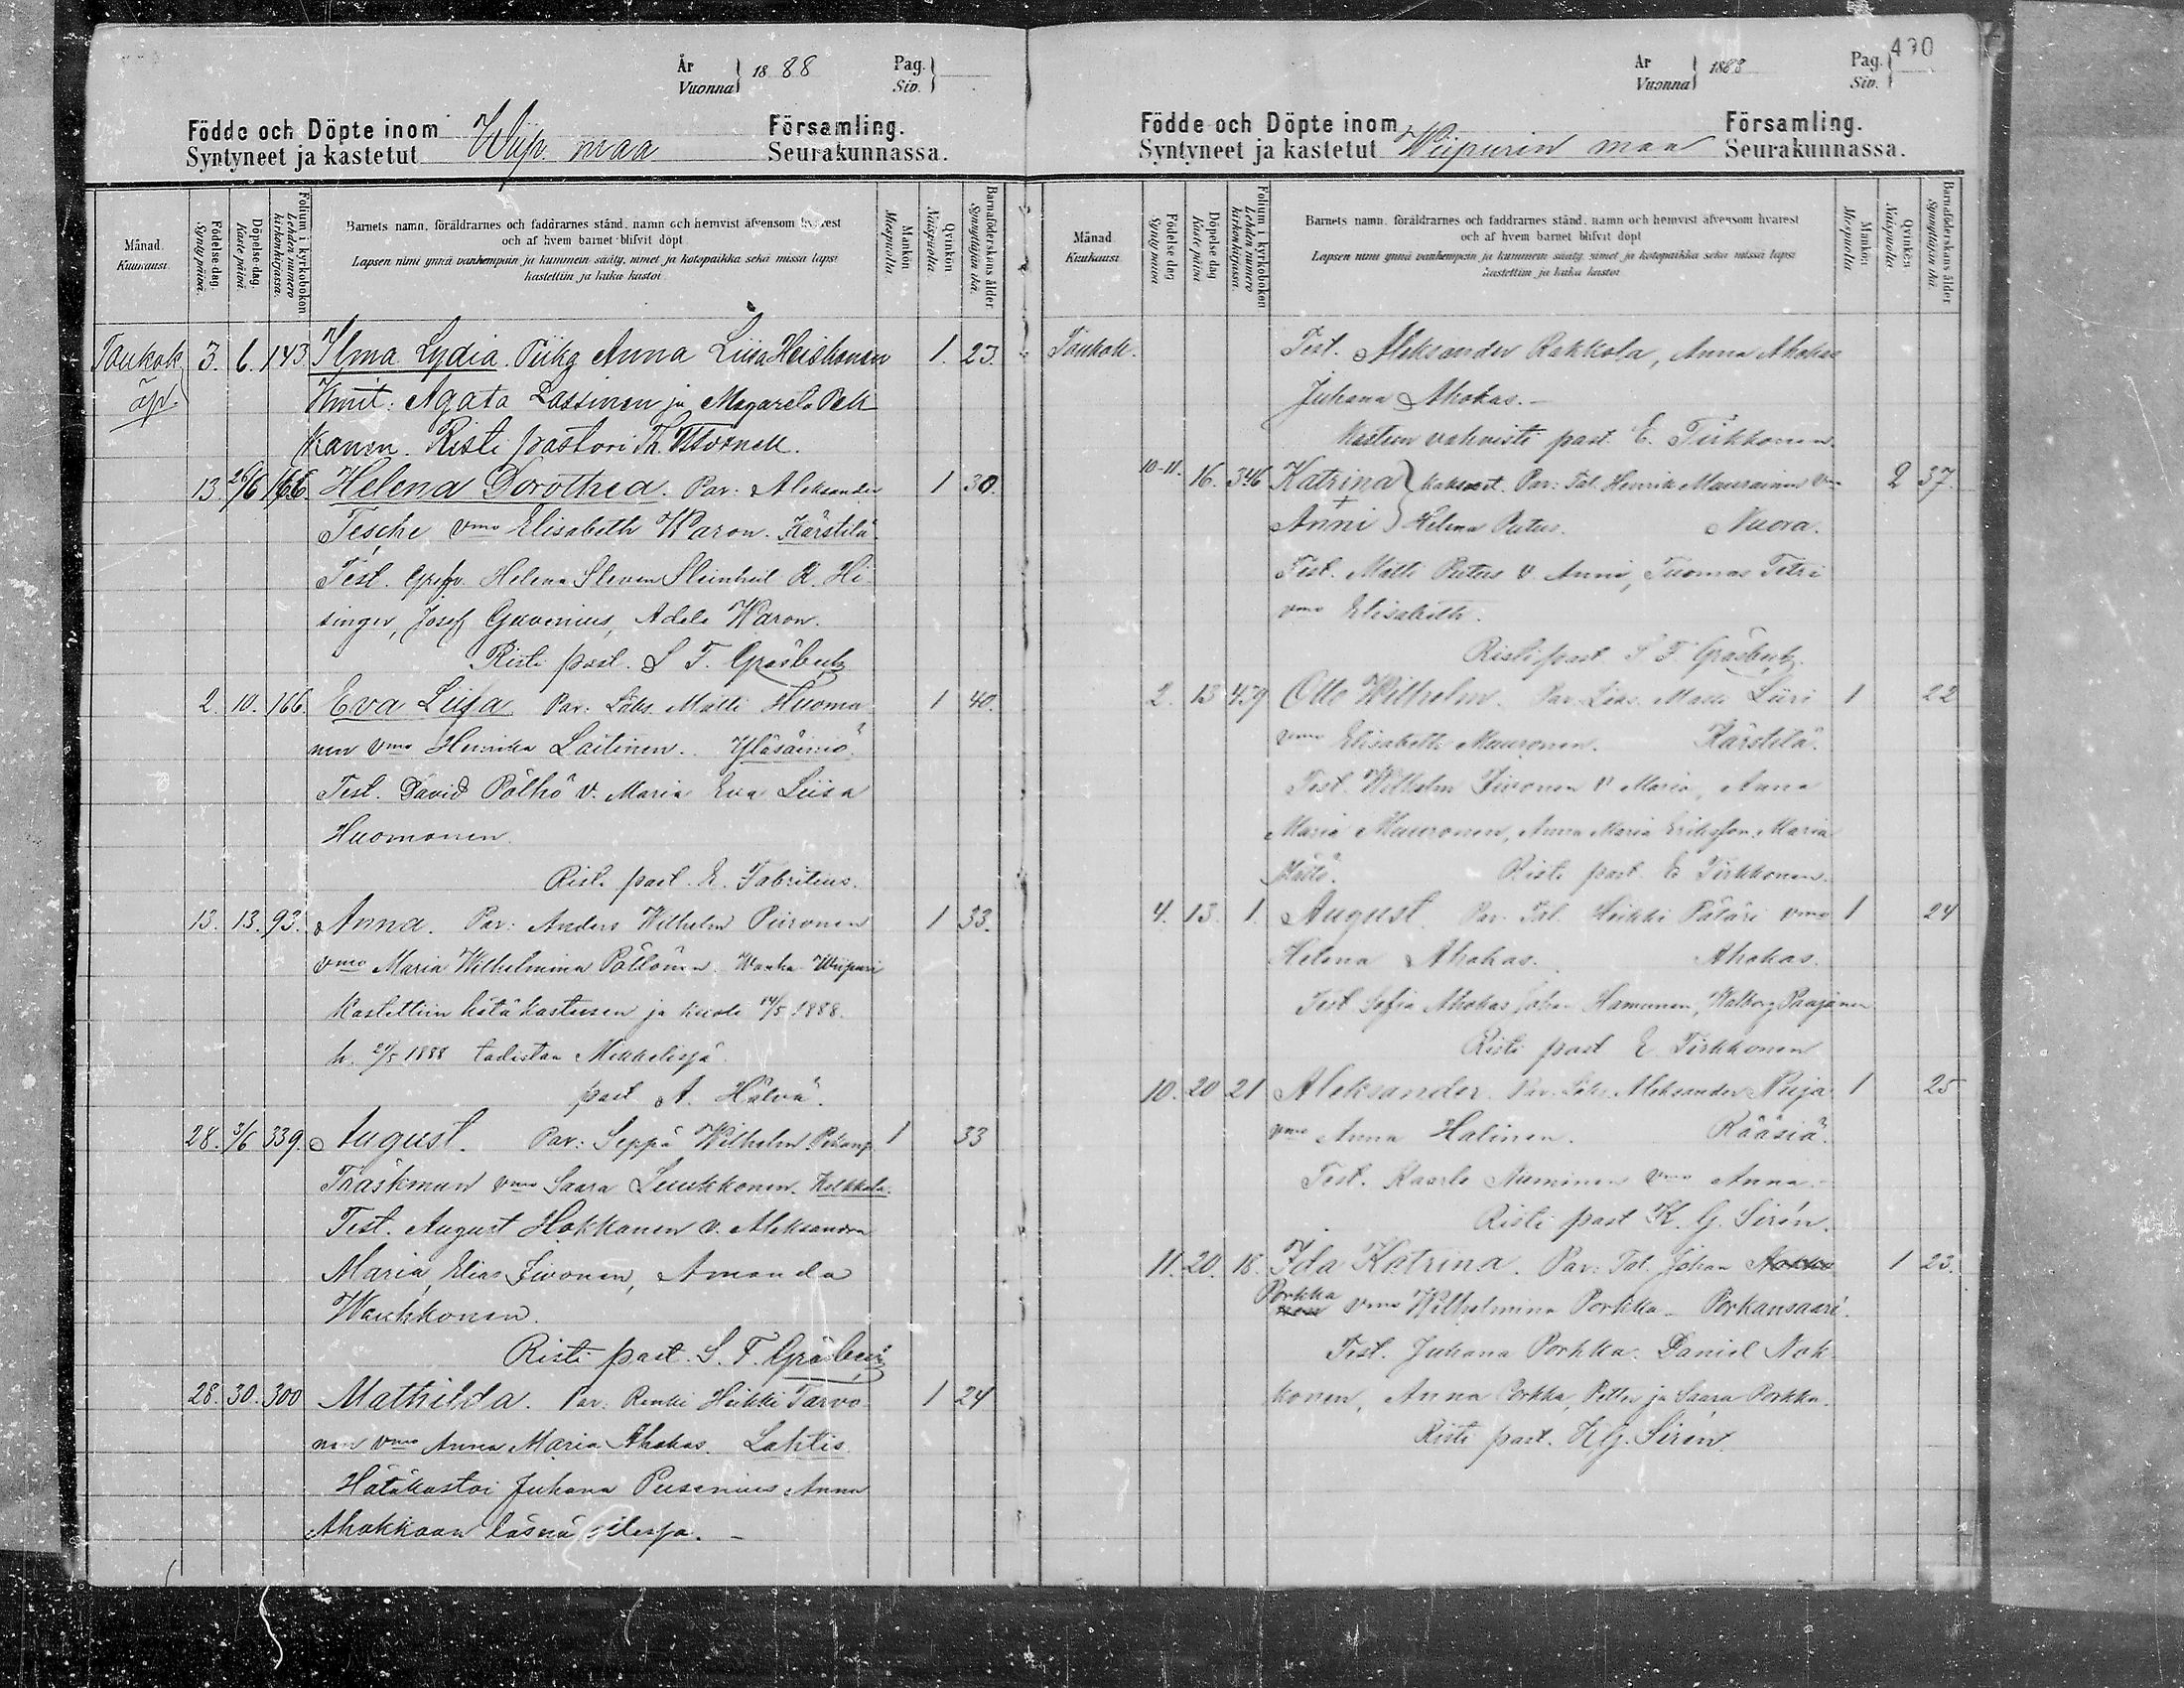 År
Vuonna 1888 Pag.
Siv.
Födde och Döpte inom Wiip. maa Församling.
Syntyneet ja kastetut Seurakunnassa.
Månad.
Kuukausi.
Födelse-dag.
Synty päivä.
Döpelse-dag.
Kaste päivä.
Folium i kyrkoboken
Lehden numero kirkonkirjassa.
Barnets namn, föräldrarnes och faddrarnes stånd, namn och hemvist äfvensom hvarest
och af hvem barnet blifvit döpt
Lapsen nimi ynnä vanhempain ja kummein sääty, nimet ja kotopaikka sekä missä lapsi
kastettiin ja kuka kastoi.
Mankön
Miespuolta.
Qvinkön
Naispuolta.
Barnaföderskans ålder
Synnyttäjän ikä.
Toukok. 3. 6. 143. Ilma Lydia. Piika Anna Liisa Heiskanen 1. 23.
äp. Kmit: Agata Lassinen ja Magareta Pelk
kanen. Risti pastori Th.
13 26/6 166. Helena Dorothea. Par: Aleksander 1 30.
Tesche vmo Elisabeth Waron. Kärstilä.
Test. Helena Steven Steinheil R. Hi
singer, Josef Adele Waron.
Risti past. S. F. Gräsbeck
2. 10. 166. Eva Liisa Par. Lois. Matti Huoma 1 40.
nen vmo Henrika Laitinen. Yläsäiniö.
Test. David Pölhö v. Maria Eva Liisa
Huomonen.
Risti past. E. Fabritius.
13. 13. 93. Anna. Par: Anders Wilhelm Piironen 1 33.
vmo Maria Wilhelmina Pöllönen. Wanha Wiipuri
Kastettiin hätäkasteesen ja kuoli 14/5 1888.
h. 21/5 1888 todistaa Mikkelissä
past A. Hälvä.
28. 3/6 339. August. Par: Seppä Wilhelm 1 33
Träskman vmo Saara Luukkonen. Kolkkala.
Test. August Hokkanen v. Aleksandra
Maria, Elias Sivonen, Amanda
Wauhkonen.
Risti past. S. F. Gräsbeck
28. 30. 300 Mathilda. Par: Renki Heikki Tarvo 1 24
nen vmo Anna Maria Ahokas. Lahtis.
Hätäkastoi Juhana Pusenius Anna
Ahokkaan läsnä ollessa.
490
År
Vuonna 1888 Pag.
Siv.
Födde och Döpte inom Wiipurin maa Församling.
Syntyneet ja kastetut Seurakunnassa.
Månad
Kuukausi
Födelse dag
Synty päivä
Döpelse dag
Kaste päivä
Folium i kyrkoboken
Lehden numero kirkonkirjassa.
Barnets namn, föräldrarnes och faddrarnes stånd, namn och hemvist äfvensom hvarest
och af hvem barnet blifvit döpt
Lapsen nimi ynnä vanhempain ja kummein sääty, nimet ja kotopaikka sekä missä lapsi
kastettiin ja kuka kastoi
Mankön
Miespuolta
Qvinkön
Naispuolta
Barnaföderskans ålder
Synnyttäjän ikä
Toukok. Test. Aleksander Rakkola, Anna Ahokas
Juhana Ahokas.
Kasteen vahvisti past. E. Tirkkonen.
10-11. 16. 346 Katrina Kaksoset. Par: Tal. Henrik vmo 2 37.
Anni Helena Putus. Nuora.
Test. Matti Putus v. Anni, Tuomas Tetri
vmo Elisabeth.
Risti past S. F. Gräsbeck.
2. 13 459 Otto Wilhelm. Par. Lois. Matti Liiri 1 22
vmo Elisabeth Muuronen. Kärstilä.
Test. Wilhelm Sivonen v Maria, Anna
Maria Muuronen, Anna Maria Eriksson, Maria
Risti past E. Tirkkonen.
4. 13. 1. August. Par. Tal. Heikki Pätäri vmo 1 24
Helena Ahokas. Ahokas.
Test. Sofia Ahokas, Johan Hamunen, Walborg Paajanen
Risti past E. Tirkkonen
10. 20 21 Aleksander. Par. Lois. Aleksander Nuija 1 25
vmo Anna Halinen. Rääsiä.
Test. Kaarle Nieminen vmo Anna.
Risti past K. G. Sirén.
11. 20. 18. Ida Katrina. Par: Tal. Johan Nokko 1 23.
Porkka
nen vmo Wilhelmina Porkka. Porkansaari.
Test. Juhana Porkka. Daniel Nok
konen, Anna Porkka, Petter ja Saara Porkka.
Risti past. K. G. Sirén